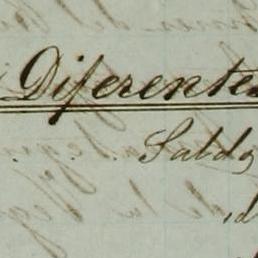 Diferentes
Saldo
id